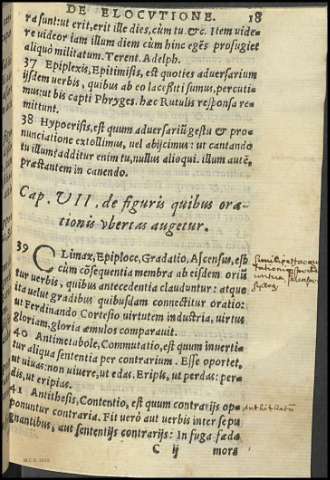 DE ELOCVTIONE. 18
ra sunt: ut erit, erit ille dies, cùm tu &c. Item uide
re uideor iam illum diem cùm hinc egẽs profugiet
aliquò militatum. Terent. Adelph.
37 Epiplexis, Epitimisis, est quoties aduersarium
ijsdem uerbis, quibus ab eo lacessiti sumus, percuti-
mus: ut bis capti Phryges. hæc Rutulis responsa re-
mittunt.
38 Hypocrisis, est quum aduersariũ gestu & pro-
nunciatione extollimus, uel abijcimus: ut cantando
tu illum? additur enim tu, nullus alioqui. illum autẽ,
præstantem in canendo.
Cap. VII. de figuris quibus ora-
tionis vbertas augetur.
39 CLimax, Epiploce, Gradatio, Ascensus, est
cùm cõsequentia membra ab eisdem oriũ
tur uerbis, quibus antecedentia clauduntur: atque
ita uelut gradibus quibusdam connectitur oratio:
ut Ferdinando Cortesio uirtutem industria, uirtus
gloriam, gloria æmulos comparauit.
40 Antimetabole, Commutatio, est quum inuerti-
tur aliqua sententia per contrarium. Esse oportet,
ut uiuas: non uiuere, ut edas. Eripis, ut perdas: per-
dis, ut eripias.
41 Antithesis, Contentio, est quum contrarijs op-
ponuntur contraria. Fit uerò aut uerbis inter se pu
gnantibus, aut sententijs contrarijs: In fuga fœda
C ij mors